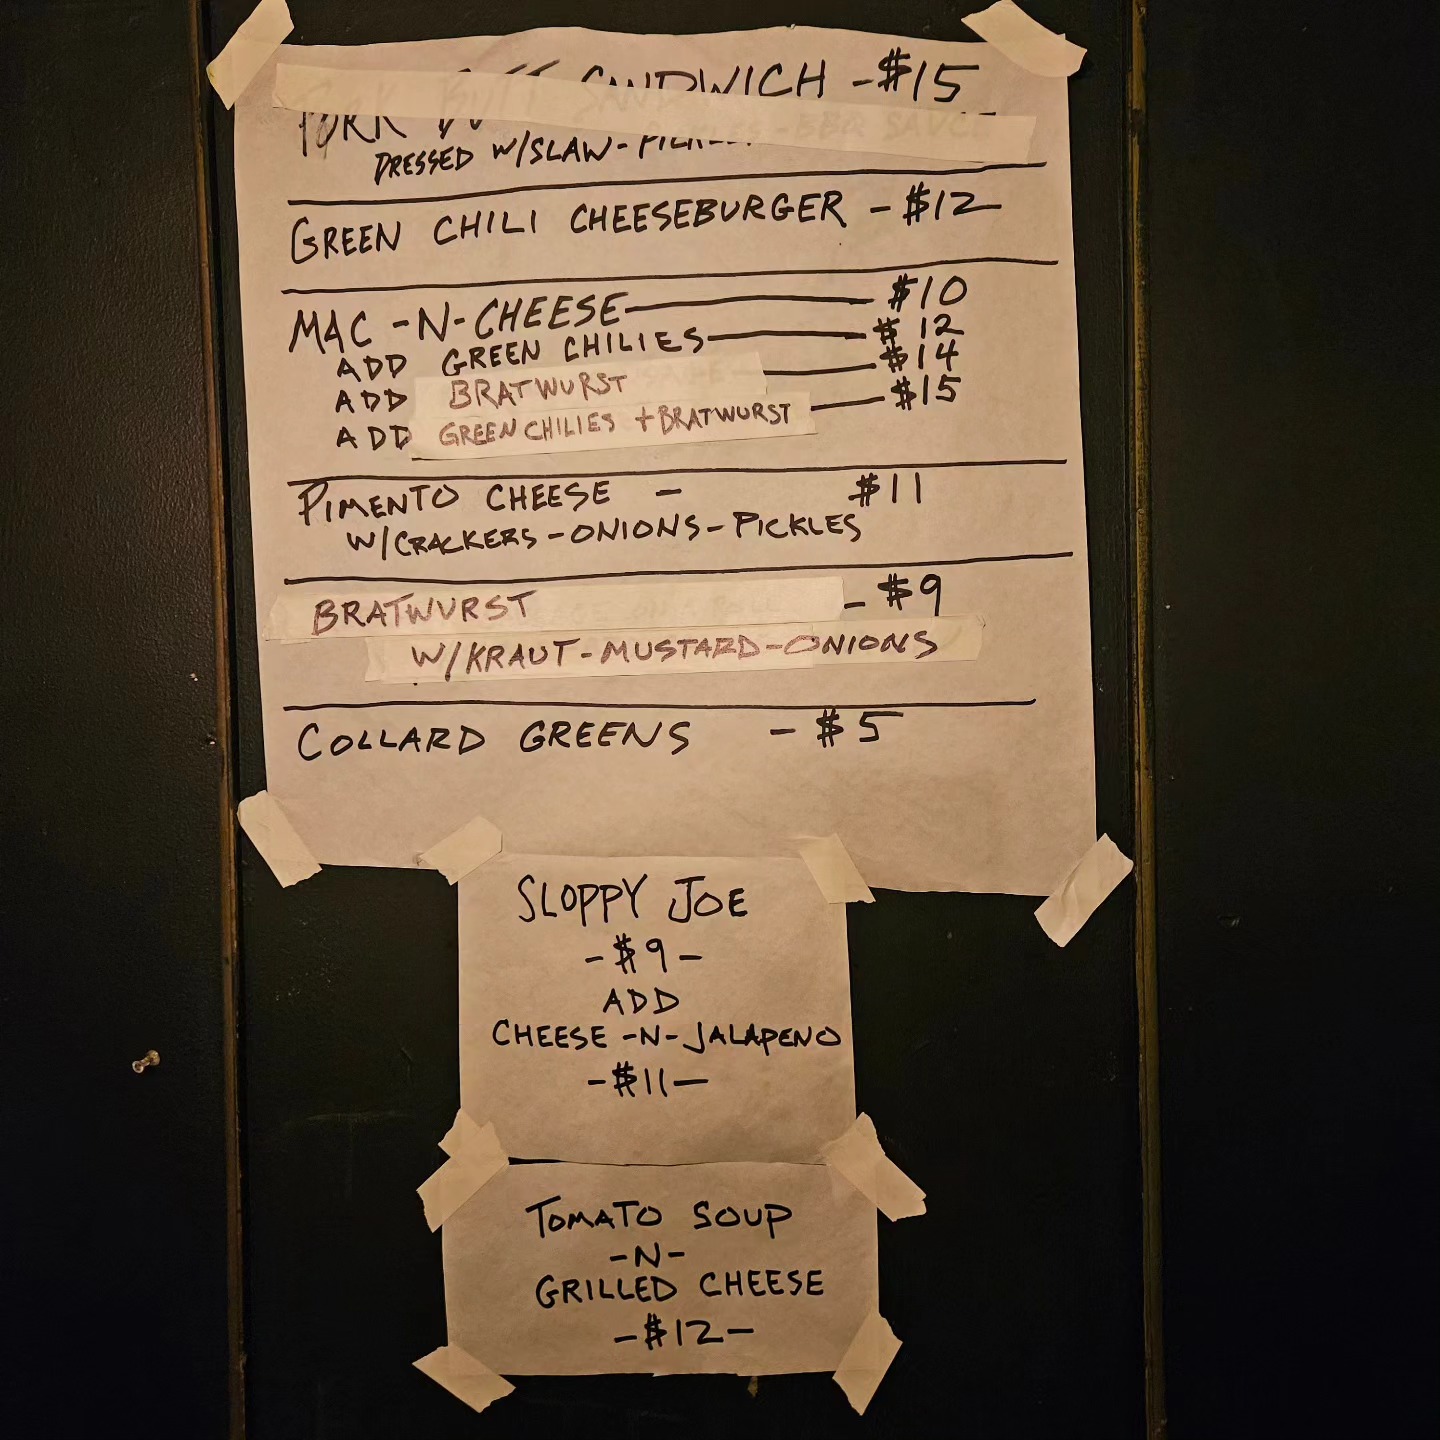 PORK BUTT SANDWICH -$15
DRESSED W/SLAW- PICKLES -BBQ SAUCE
GREEN CHILI CHEESEBURGER - $12
MAC -N- CHEESE $10
ADD GREEN CHILIES $12
ADD BRATWURST $14
ADD GREEN CHILIES + BRATWURST $15
PIMENTO CHEESE - $11
W/CRACKERS-ONIONS-PICKLES
BRATWURST - $9
W/KRAUT-MUSTARD-ONIONS
COLLARD GREENS - $5
SLOPPY JOE
-$9-
ADD
CHEESE -N- JALAPENO
-$11-
TOMATO SOUP
-N-
GRILLED CHEESE
-$12-